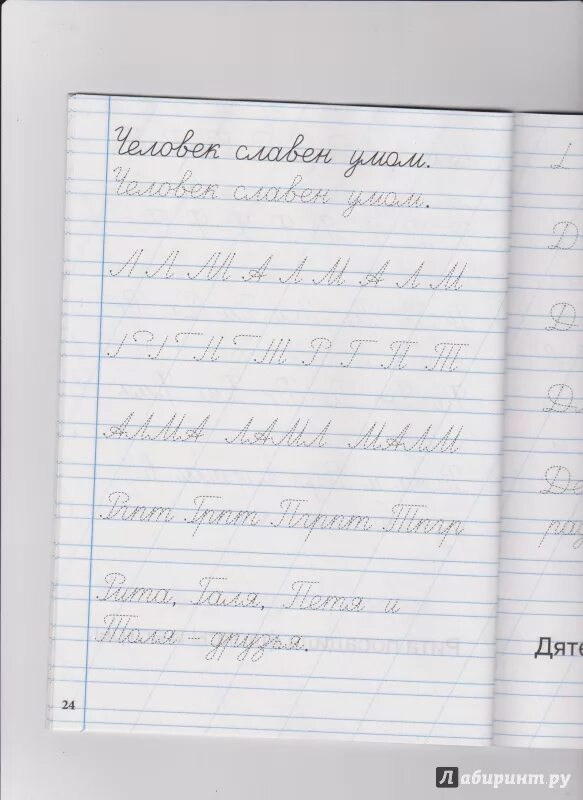 Человек славен умом.
Человек славен умом.
Л Л М А Л М А Л М
Р Г П Т
АЛМА ЛАМЛ МАЛМ
Ргпт Грпт Пгрпт Тпгр
Рита, Галя, Петя и
Толя – друзья.
24
Д
Д
Дяте
Лабиринт.ру